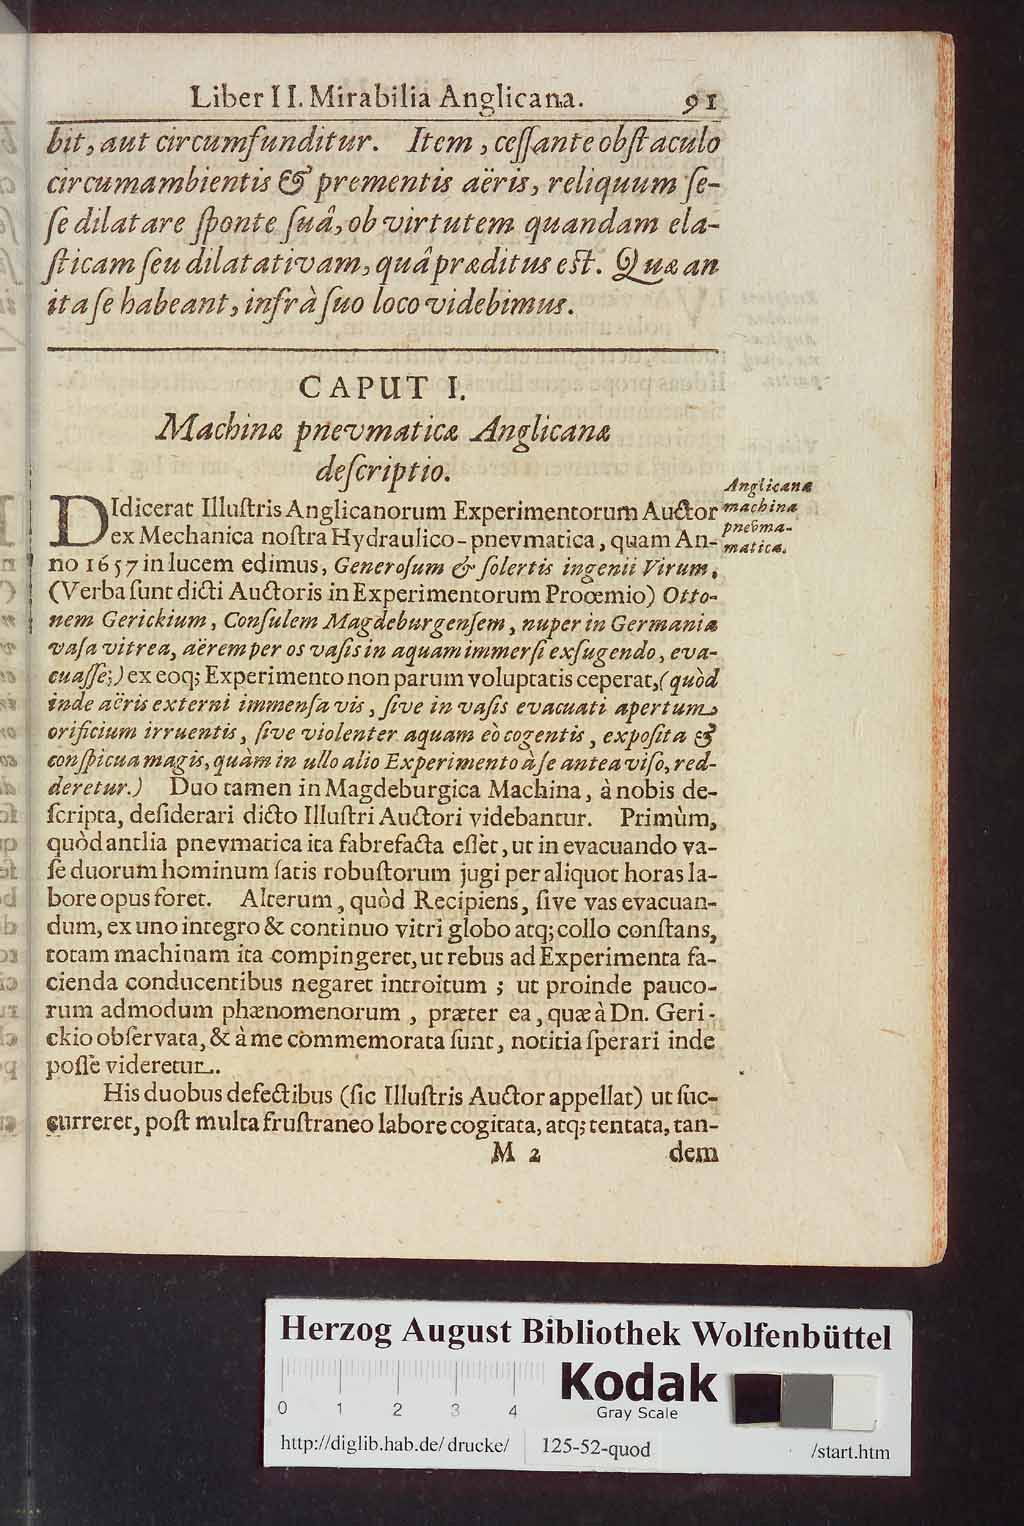 Liber II. Mirabilia Anglicana. 91
bit, aut circumfunditur. Item, ceſſante obſtaculo
circumambientis & prementis aëris, reliquum ſe-
ſe dilatare ſponte ſuâ, ob virtutem quandam ela-
ſticam ſeu dilatativam, quâ præditus eſt. Quæ an
ita ſe habeant, infrà ſuo loco videbimus.
CAPUT I.
Machinæ pnevmaticæ Anglicanæ
deſcriptio.
Anglicanæ
machinæ
pnevma-
maticæ.
DIdicerat Illuſtris Anglicanorum Experimentorum Auctor
ex Mechanica noſtra Hydraulico-pnevmatica, quam An-
no 1657 in lucem edimus, Generoſum & ſolertis ingenii Virum,
(Verba ſunt dicti Auctoris in Experimentorum Proœmio) Otto-
nem Gerickium, Conſulem Magdeburgenſem, nuper in Germania
vaſa vitrea, aërem per os vaſis in aquam immerſi exſugendo, eva-
cuaſſe;) ex eoq; Experimento non parum voluptatis ceperat, (quòd
inde aëris externi immenſa vis, ſive in vaſis evacuati apertum
orificium irruentis, ſive violenter aquam eò cogentis, expoſita &
conſpicua magis, quàm in ullo alio Experimento à ſe antea viſo, red-
deretur.) Duo tamen in Magdeburgica Machina, à nobis de-
ſcripta, deſiderari dicto Illuſtri Auctori videbantur. Primùm,
quòd antlia pnevmatica ita fabrefacta eſſèt, ut in evacuando va-
ſe duorum hominum ſatis robuſtorum jugi per aliquot horas la-
bore opus foret. Alterum, quòd Recipiens, ſive vas evacuan-
dum, ex uno integro & continuo vitri globo atq; collo conſtans,
totam machinam ita compingeret, ut rebus ad Experimenta fa-
cienda conducentibus negaret introitum; ut proinde pauco-
rum admodum phænomenorum, præter ea, quæ à Dn. Geri-
ckio obſervata, & à me commemorata ſunt, notitia ſperari inde
poſſè videretur.
His duobus defectibus (ſic Illuſtris Auctor appellat) ut ſuc-
curreret, poſt multa fruſtraneo labore cogitata, atq; tentata, tan-
M 2 dem
Herzog August Bibliothek Wolfenbüttel
Kodak
Gray Scale
0 1 2 3 4
http://diglib.hab.de/drucke/ 125-52-quod /start.htm